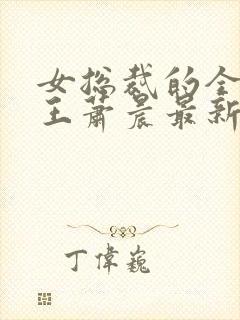 女总裁的全
王萧晨最新
丁偉巍